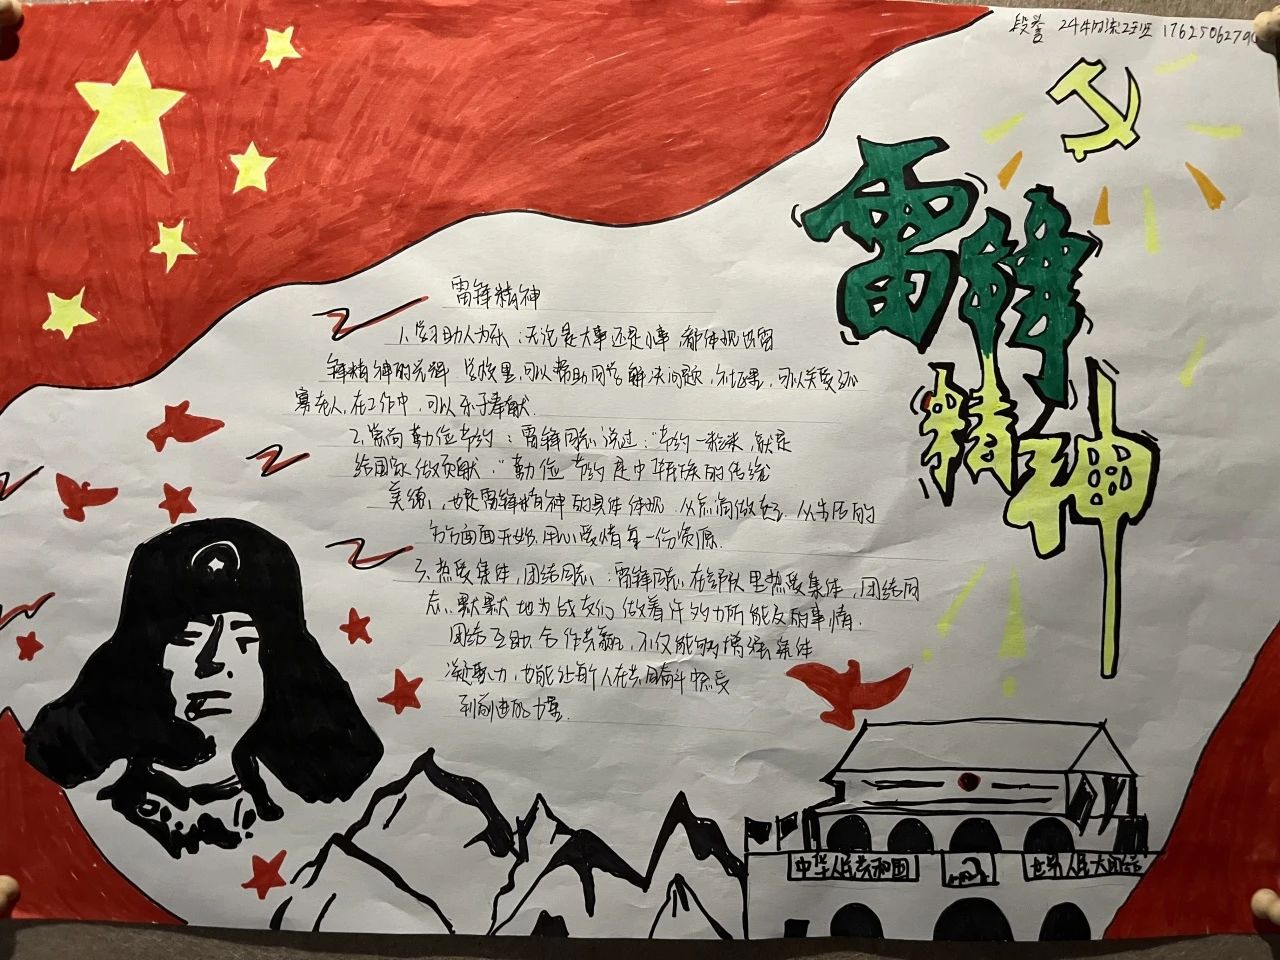 段誉 24牛门流2班 1762506279
雷锋
精神
雷锋精神
1.学习助人为乐:无论是大事还是小事 都体现出雷
锋精神的光辉 学校里,可以帮助同学解决问题,社区里,可以关爱孤
寡老人,在工作中,可以乐于奉献.
2.崇尚勤俭节约:雷锋同志说过:"节约一粒米,就是
给国家做贡献."勤俭节约是中华民族的传统
美德,也是雷锋精神的具体体现 从点滴做起.从生活的
方方面面开始,用心爱惜每一份资源.
3.热爱集体,团结同志:雷锋同志在部队里热爱集体,团结同
志.默默地为战友们做着许多力所能及的事情.
团结互助合作共赢,不仅能够增强集体
凝聚力,也能让每个人在共同奋斗中感受
到前进的力量.
中华人民共和国
世界人民大团结